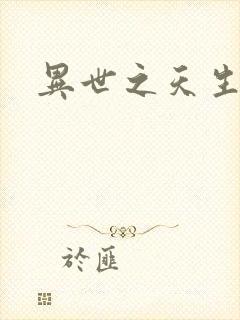 異世之天生
於匪